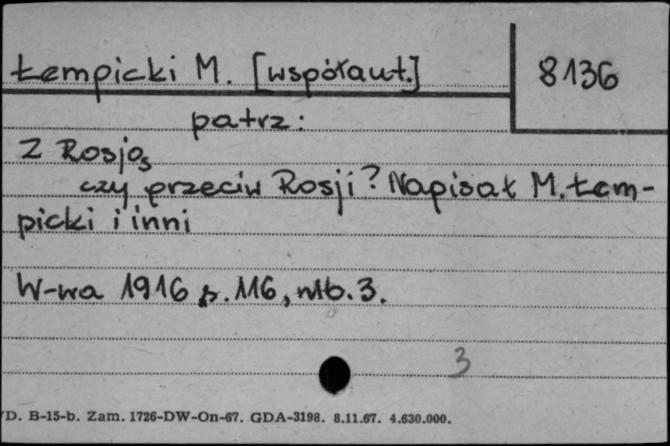 Łempicki M. [współaut.]
8136
patrz:
Z Rosją
czy przeciw Rosji? Napisał M. Łem-
picki i inni
W-wa 1916 s. 116, nlb. 3.
3
D. B-15-b. Zam. 1726-DW-On-67. GDA-3198. 8.11.67. 4.630.000.